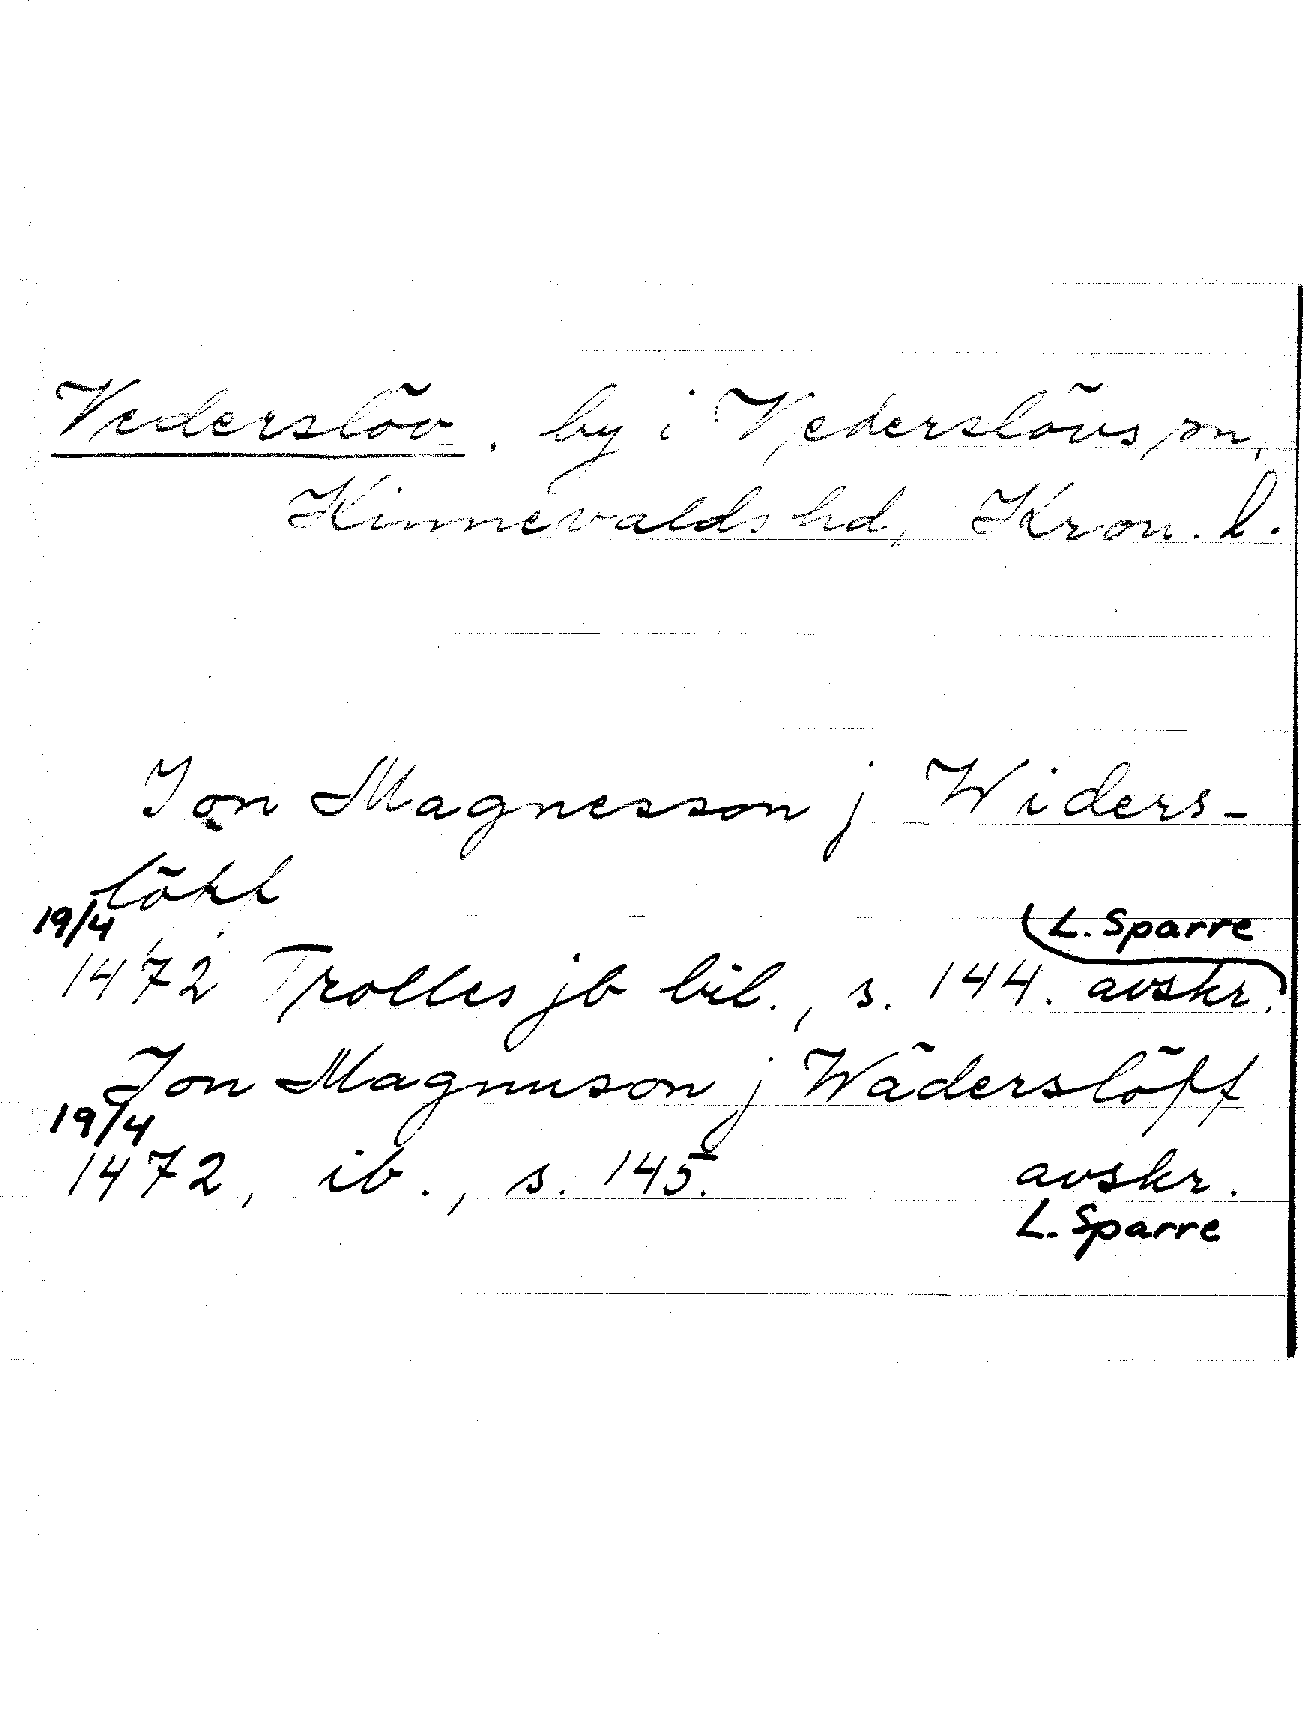 Vederslöv. by i Vederslövs sn,
Kinnevalds hd, Kron. l.
Jon Magnesson j Widers-
löhf
19/4
L. Sparre
1472 Trolles jb bil., s. 144. avskr.
Jon Magnuson j Wäderslöff
19/4
1472, ib., s. 145. avskr.
L. Sparre